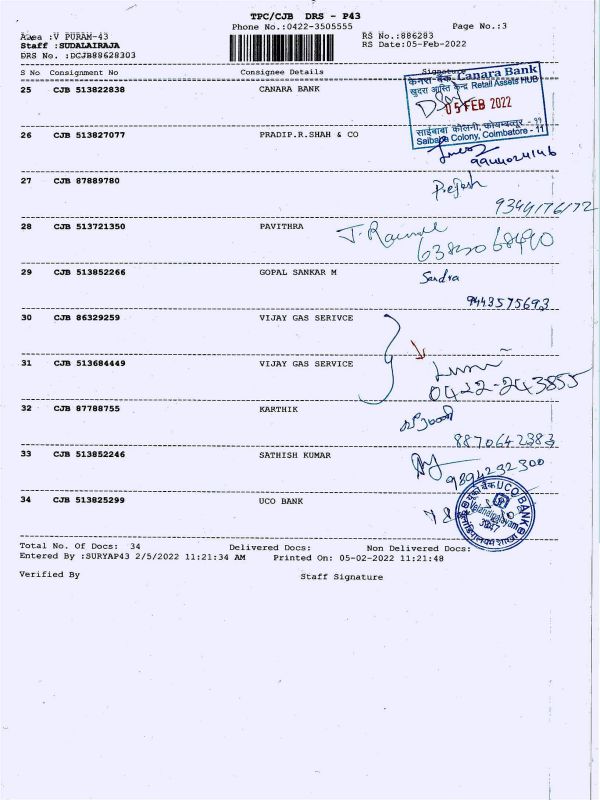 TPC/CJB DRS - P43
Phone No.:0422-3505555 Page No.:3
Area :V PURAM-43 RS No.:886283
Staff :SUDALAIRAJA RS Date:05-Feb-2022
DRS No. :DCJB88628303
S No Consignment No Consignee Details Signature
25 CJB 513822838 CANARA BANK
केनरा बैंक Canara Bank
खुदरा आस्ति केन्द्र Retail Assets HUB
05 FEB 2022
साईबाबा कोलनी, कोयम्बत्तूर - 11
Saibaba Colony, Coimbatore - 11
26 CJB 513827077 PRADIP.R.SHAH & CO
9944024146
27 CJB 87889780
9344176172
28 CJB 513721350 PAVITHRA
29 CJB 513852266 GOPAL SANKAR M
Sandra
9443575693
30 CJB 86329259 VIJAY GAS SERIVCE
31 CJB 513684449 VIJAY GAS SERVICE
0422-243855
32 CJB 87788755 KARTHIK
8870642383
33 CJB 513852246 SATHISH KUMAR
9894232300
34 CJB 513825299 UCO BANK
यूको बैंक UCO BANK
Velandipalayam
Total No. Of Docs: 34 Delivered Docs: Non Delivered Docs:
Entered By :SURYAP43 2/5/2022 11:21:34 AM Printed On: 05-02-2022 11:21:48
Verified By Staff Signature